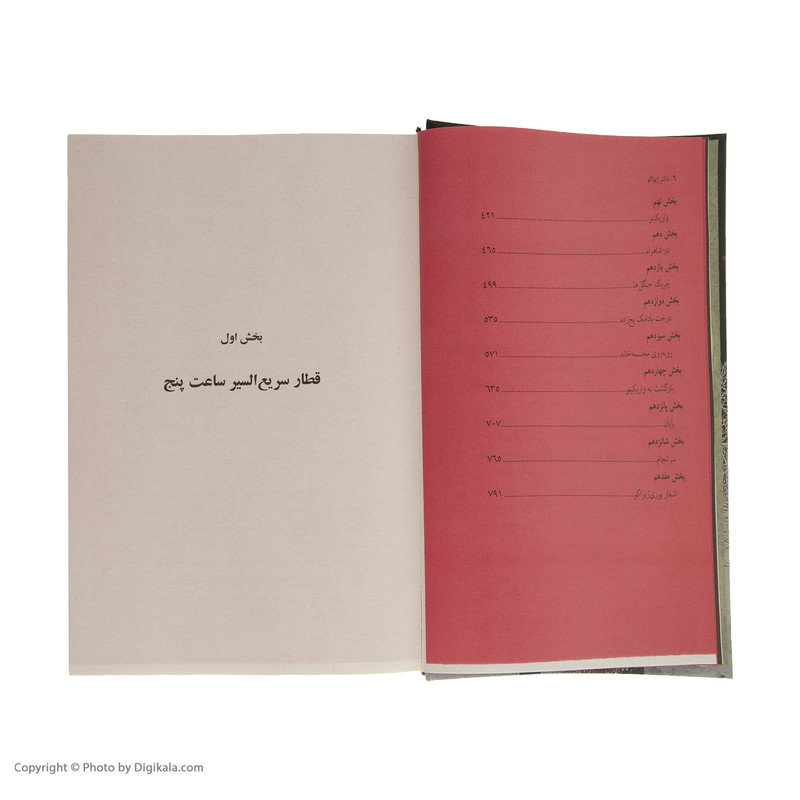 ۶ / دکتر ژیواگو
بخش نهم
واریکینو ........ ۴۲۱
بخش دهم
در شاهراه ........ ۴۶۵
بخش یازدهم
چریک جنگل‌ها ........ ۴۹۹
بخش دوازدهم
درخت بادامک یخ‌زده ........ ۵۳۵
بخش سیزدهم
روبه‌روی مجسمه‌خانه ........ ۵۷۱
بخش چهاردهم
بازگشت به واریکینو ........ ۶۳۵
بخش پانزدهم
پایان ........ ۷۰۷
بخش شانزدهم
سرانجام ........ ۷۶۵
بخش هفدهم
اشعار یوری ژیواگو ........ ۷۹۱
بخش اول
قطار سریع‌السیر ساعت پنج
Copyright © Photo by Digikala.com